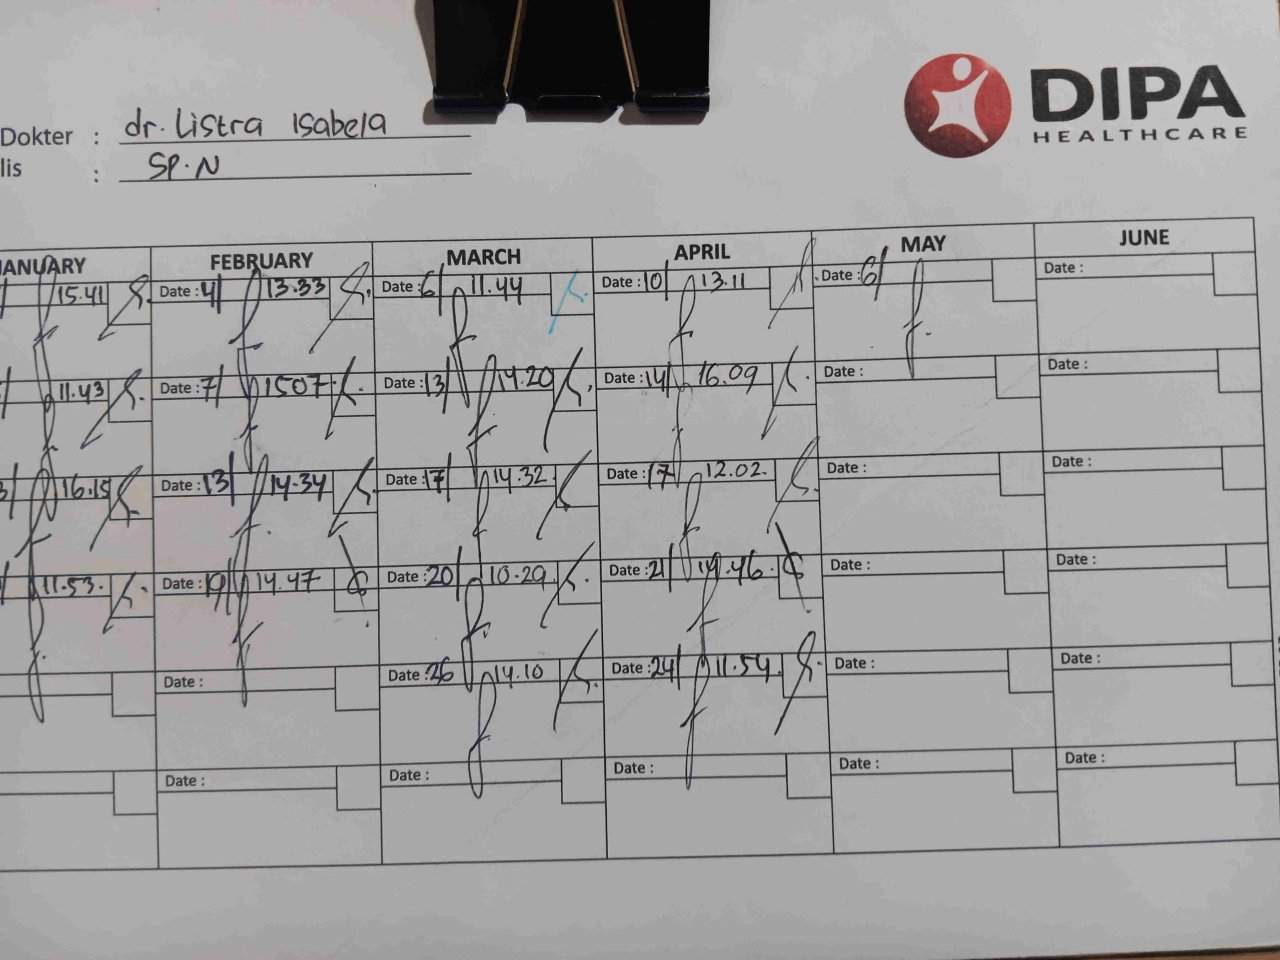 DIPA
HEALTHCARE
Dokter : dr. Listra Isabela
lis : SP.N
ANUARY FEBRUARY MARCH APRIL MAY JUNE
15.41 Date : 4/ 13.33 Date : 6/ 11.44 Date : 10/ 13.11 Date : 6/ Date :
11.43 Date : 7/ 1507 Date : 13/ 14.20 Date : 14/ 16.09 Date : Date :
16.15 Date : 13/ 14.34 Date : 17/ 14.32 Date : 17/ 12.02. Date : Date :
11.53. Date : 19/ 14.47 Date : 20/ 10.29 Date : 21/ 19.46 Date : Date :
Date : Date : 26 14.10 Date : 24/ 11.54 Date : Date :
Date : Date : Date : Date : Date :